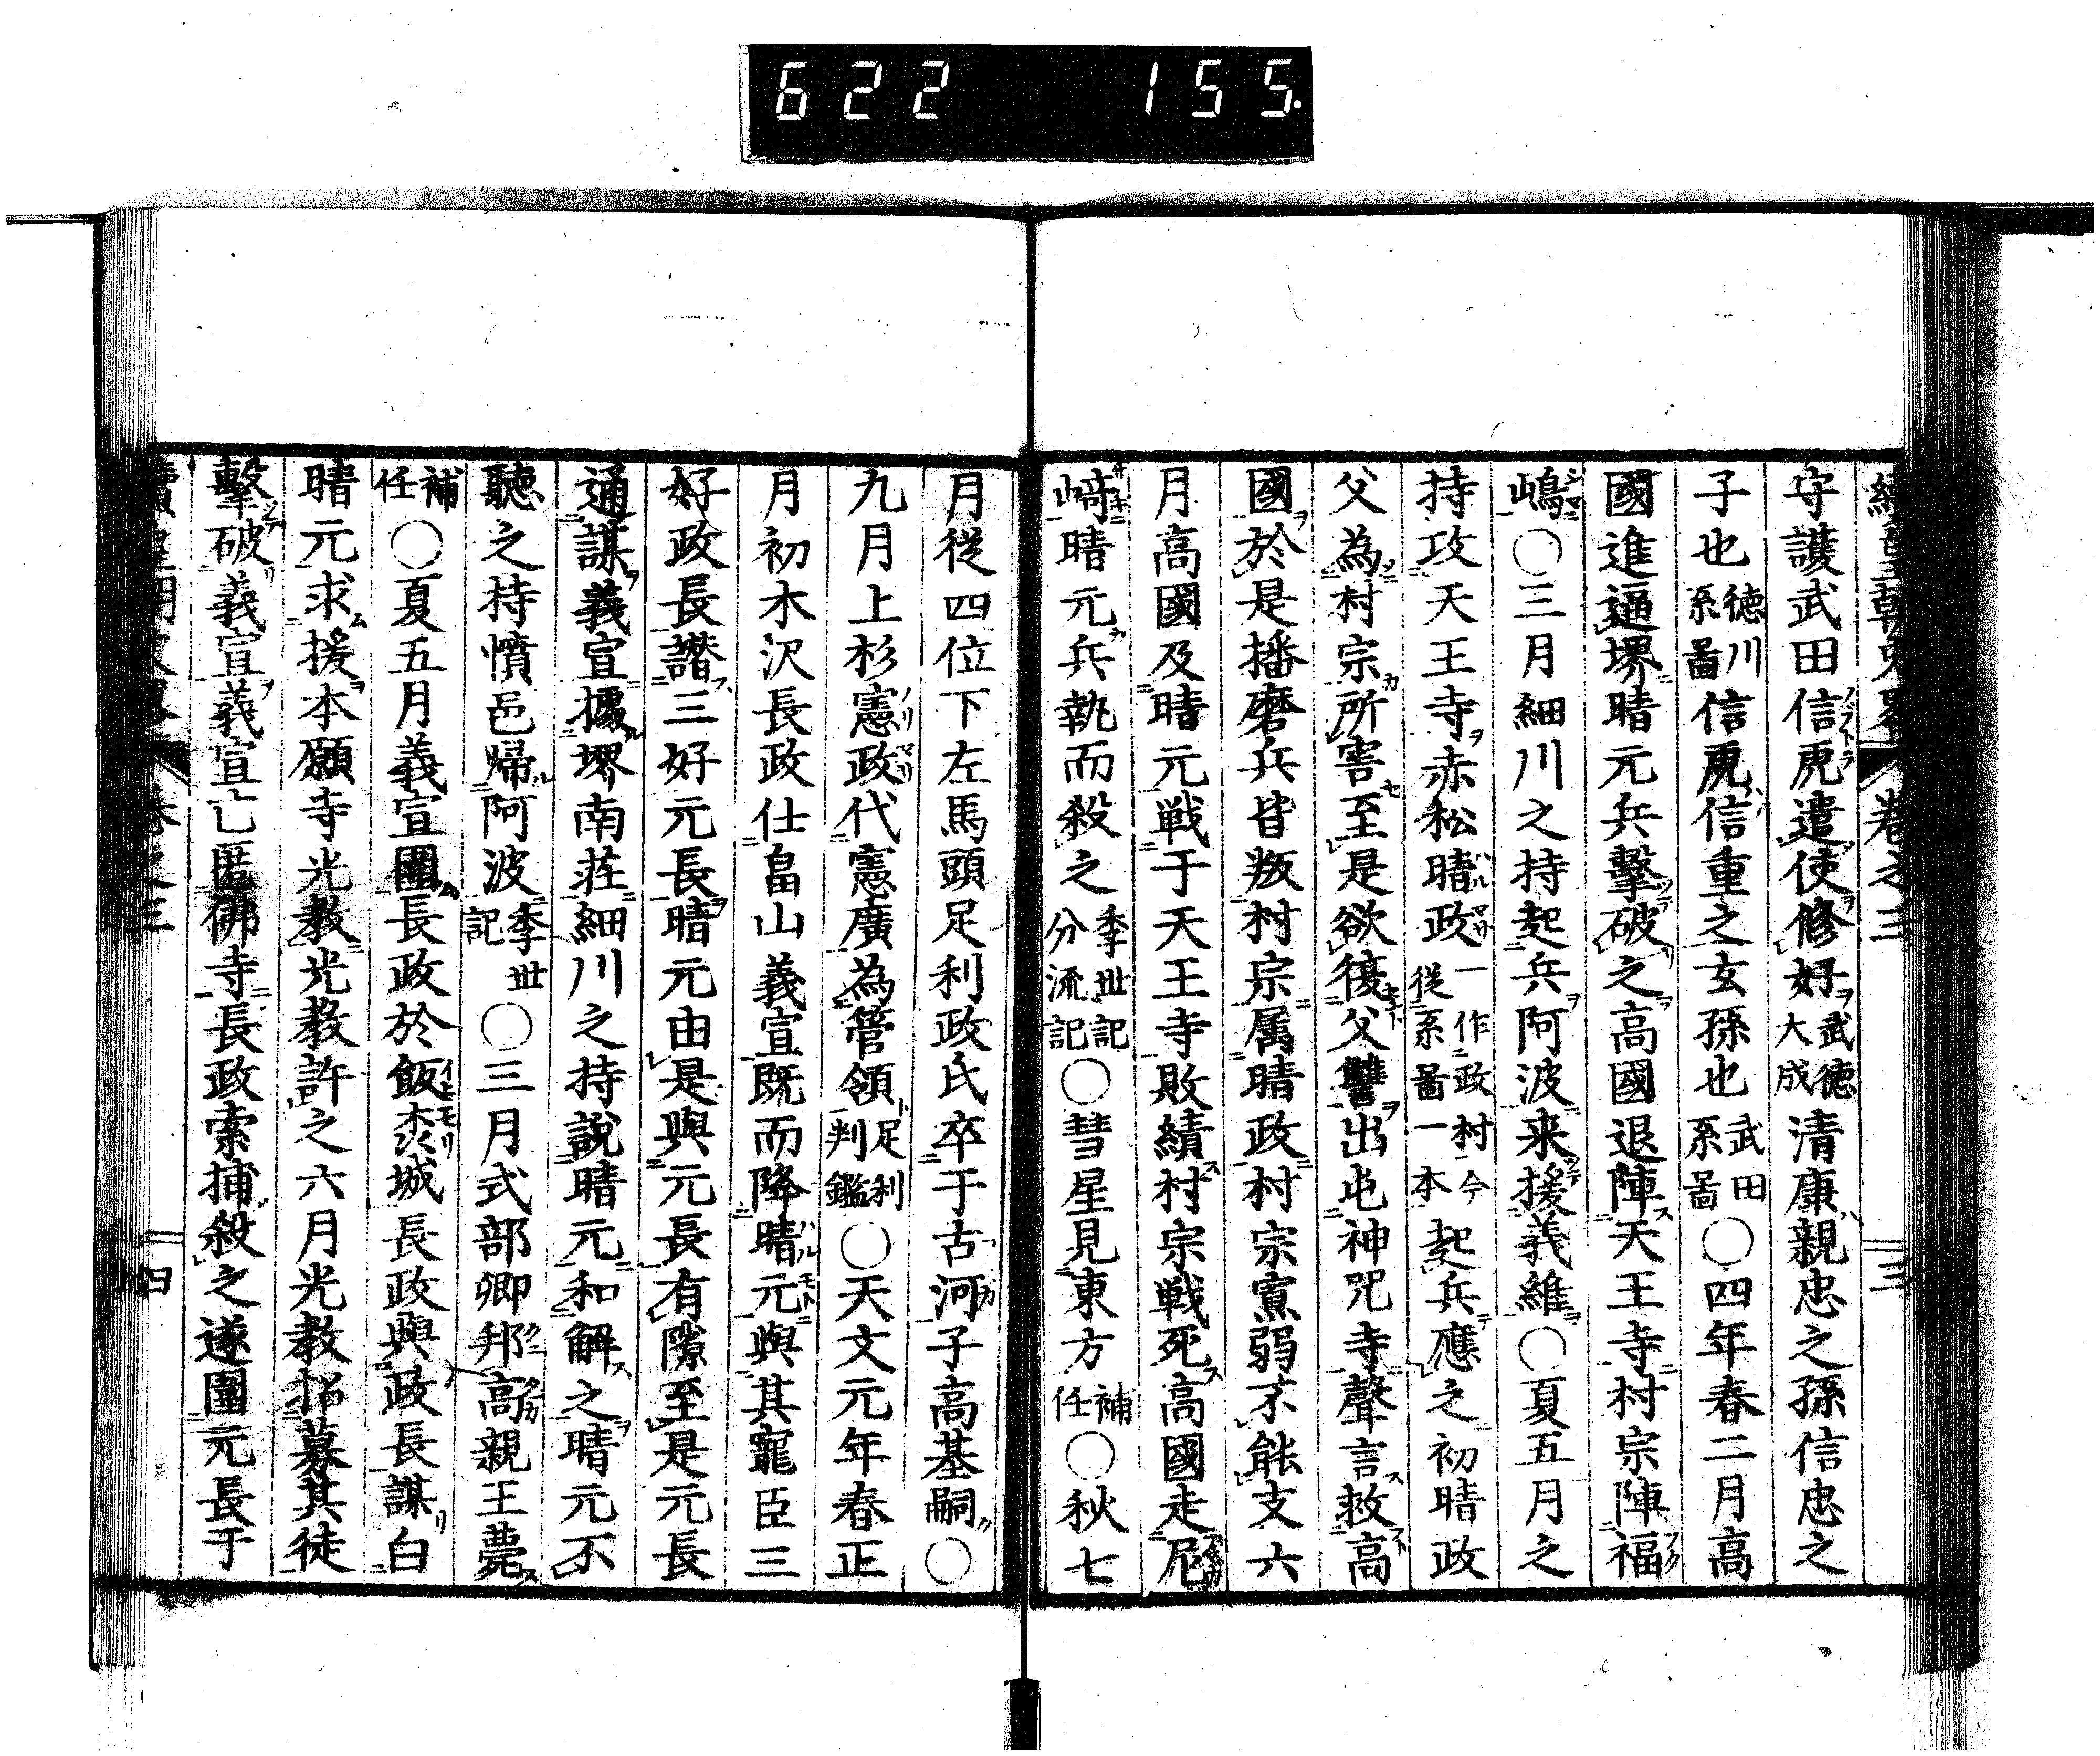 622 155.
守護武田信虎遣使修好武德大成清康親忠之孫信忠之
子也德川系圖信虎信重之玄孫也武田系圖○四年春二月高
國進逼堺晴元兵擊破之高國退陣天王寺村宗陣福
嶋○三月細川之持起兵阿波来援義維○夏五月之
持攻天王寺赤松晴政一作政村今從系圖一本起兵應之初晴政
父為村宗所害至是欲復父讐出屯神咒寺聲言救高
國於是播磨兵皆叛村宗属晴政村宗寡弱不能支六
月高國及晴元戦于天王寺敗績村宗戦死高國走尼
﨑晴元兵執而殺之季世記分流記○彗星見東方補任○秋七
月從四位下左馬頭足利政氏卒于古河子高基嗣○
九月上杉憲政代憲廣為管領足利判鑑○天文元年春正
月初木沢長政仕畠山義宣既而降晴元與其寵臣三
好政長譖三好元長晴元由是與元長有隙至是元長
通謀義宣據堺南莊細川之持說晴元和解之晴元不
聽之持憤邑歸阿波季世記○三月式部卿邦高親王薨
補任○夏五月義宣圍長政於飯盛城長政與政長謀白
晴元求援本願寺光教光教許之六月光教招募其徒
擊破義宣義宣亡匿佛寺長政索捕殺之遂圍元長于